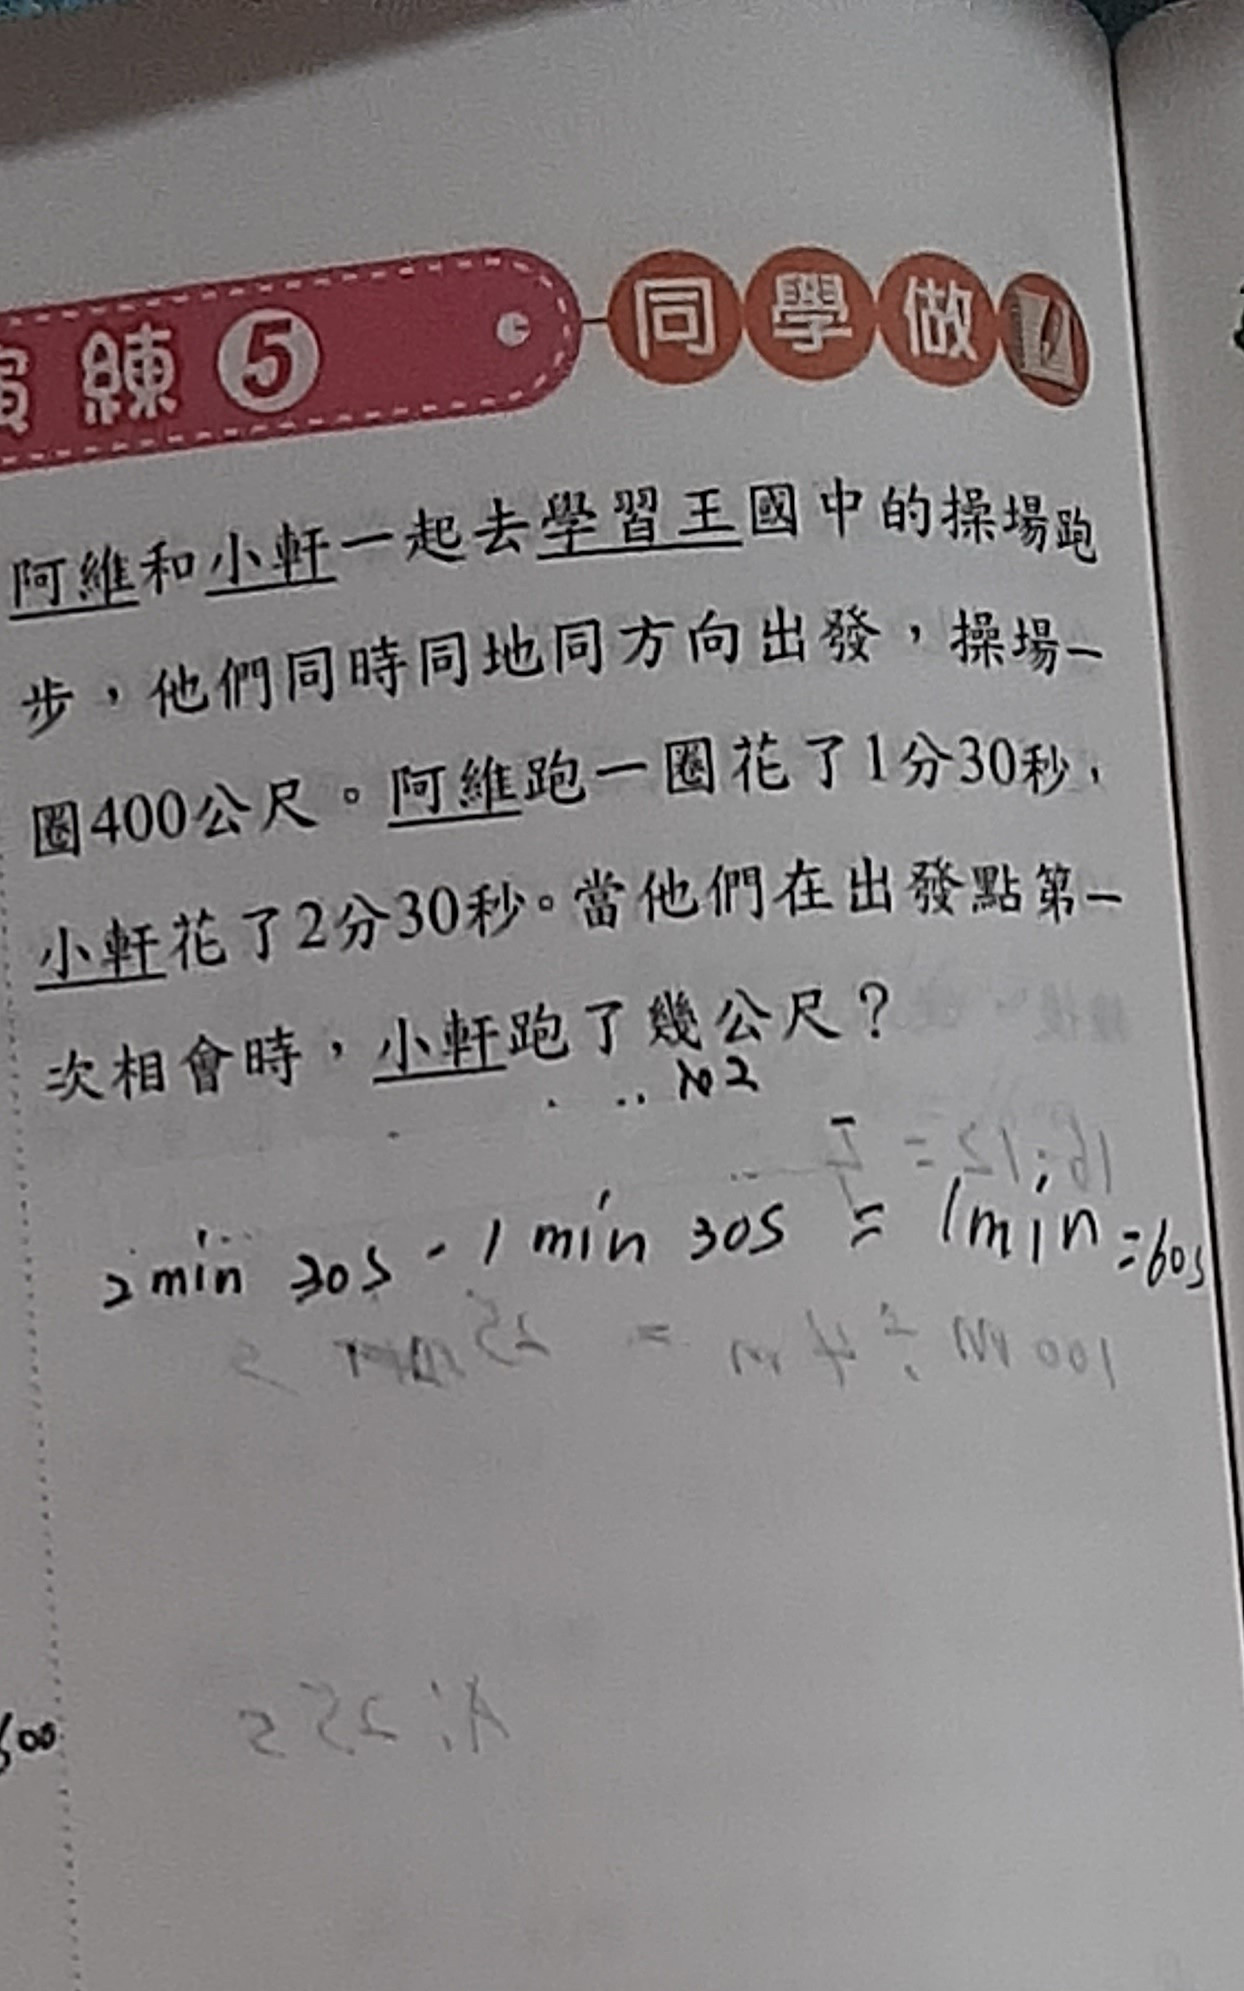 練 5 同學做
阿維和小軒一起去學習王國中的操場跑
步，他們同時同地同方向出發，操場一
圈400公尺。阿維跑一圈花了1分30秒，
小軒花了2分30秒。當他們在出發點第一
次相會時，小軒跑了幾公尺？
2 min 30s - 1 min 30s = 1min = 60s
16÷12=
100 m ÷ 4 m = 25 s
A: 25 s